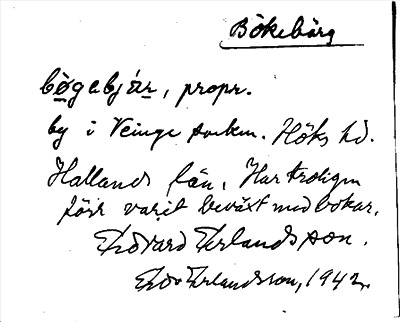 Bökebärg
bøgebjär, propr.
by i Veinge socken. Höks hd.
Hallands län. Har troligen
förr varit beväxt med bokar.
Edvard Erlandsson.
Edv Erlandsson, 1942.